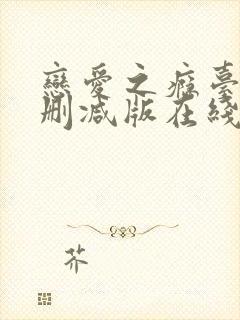 戀愛之瘾臺
刪减版在綫
芥